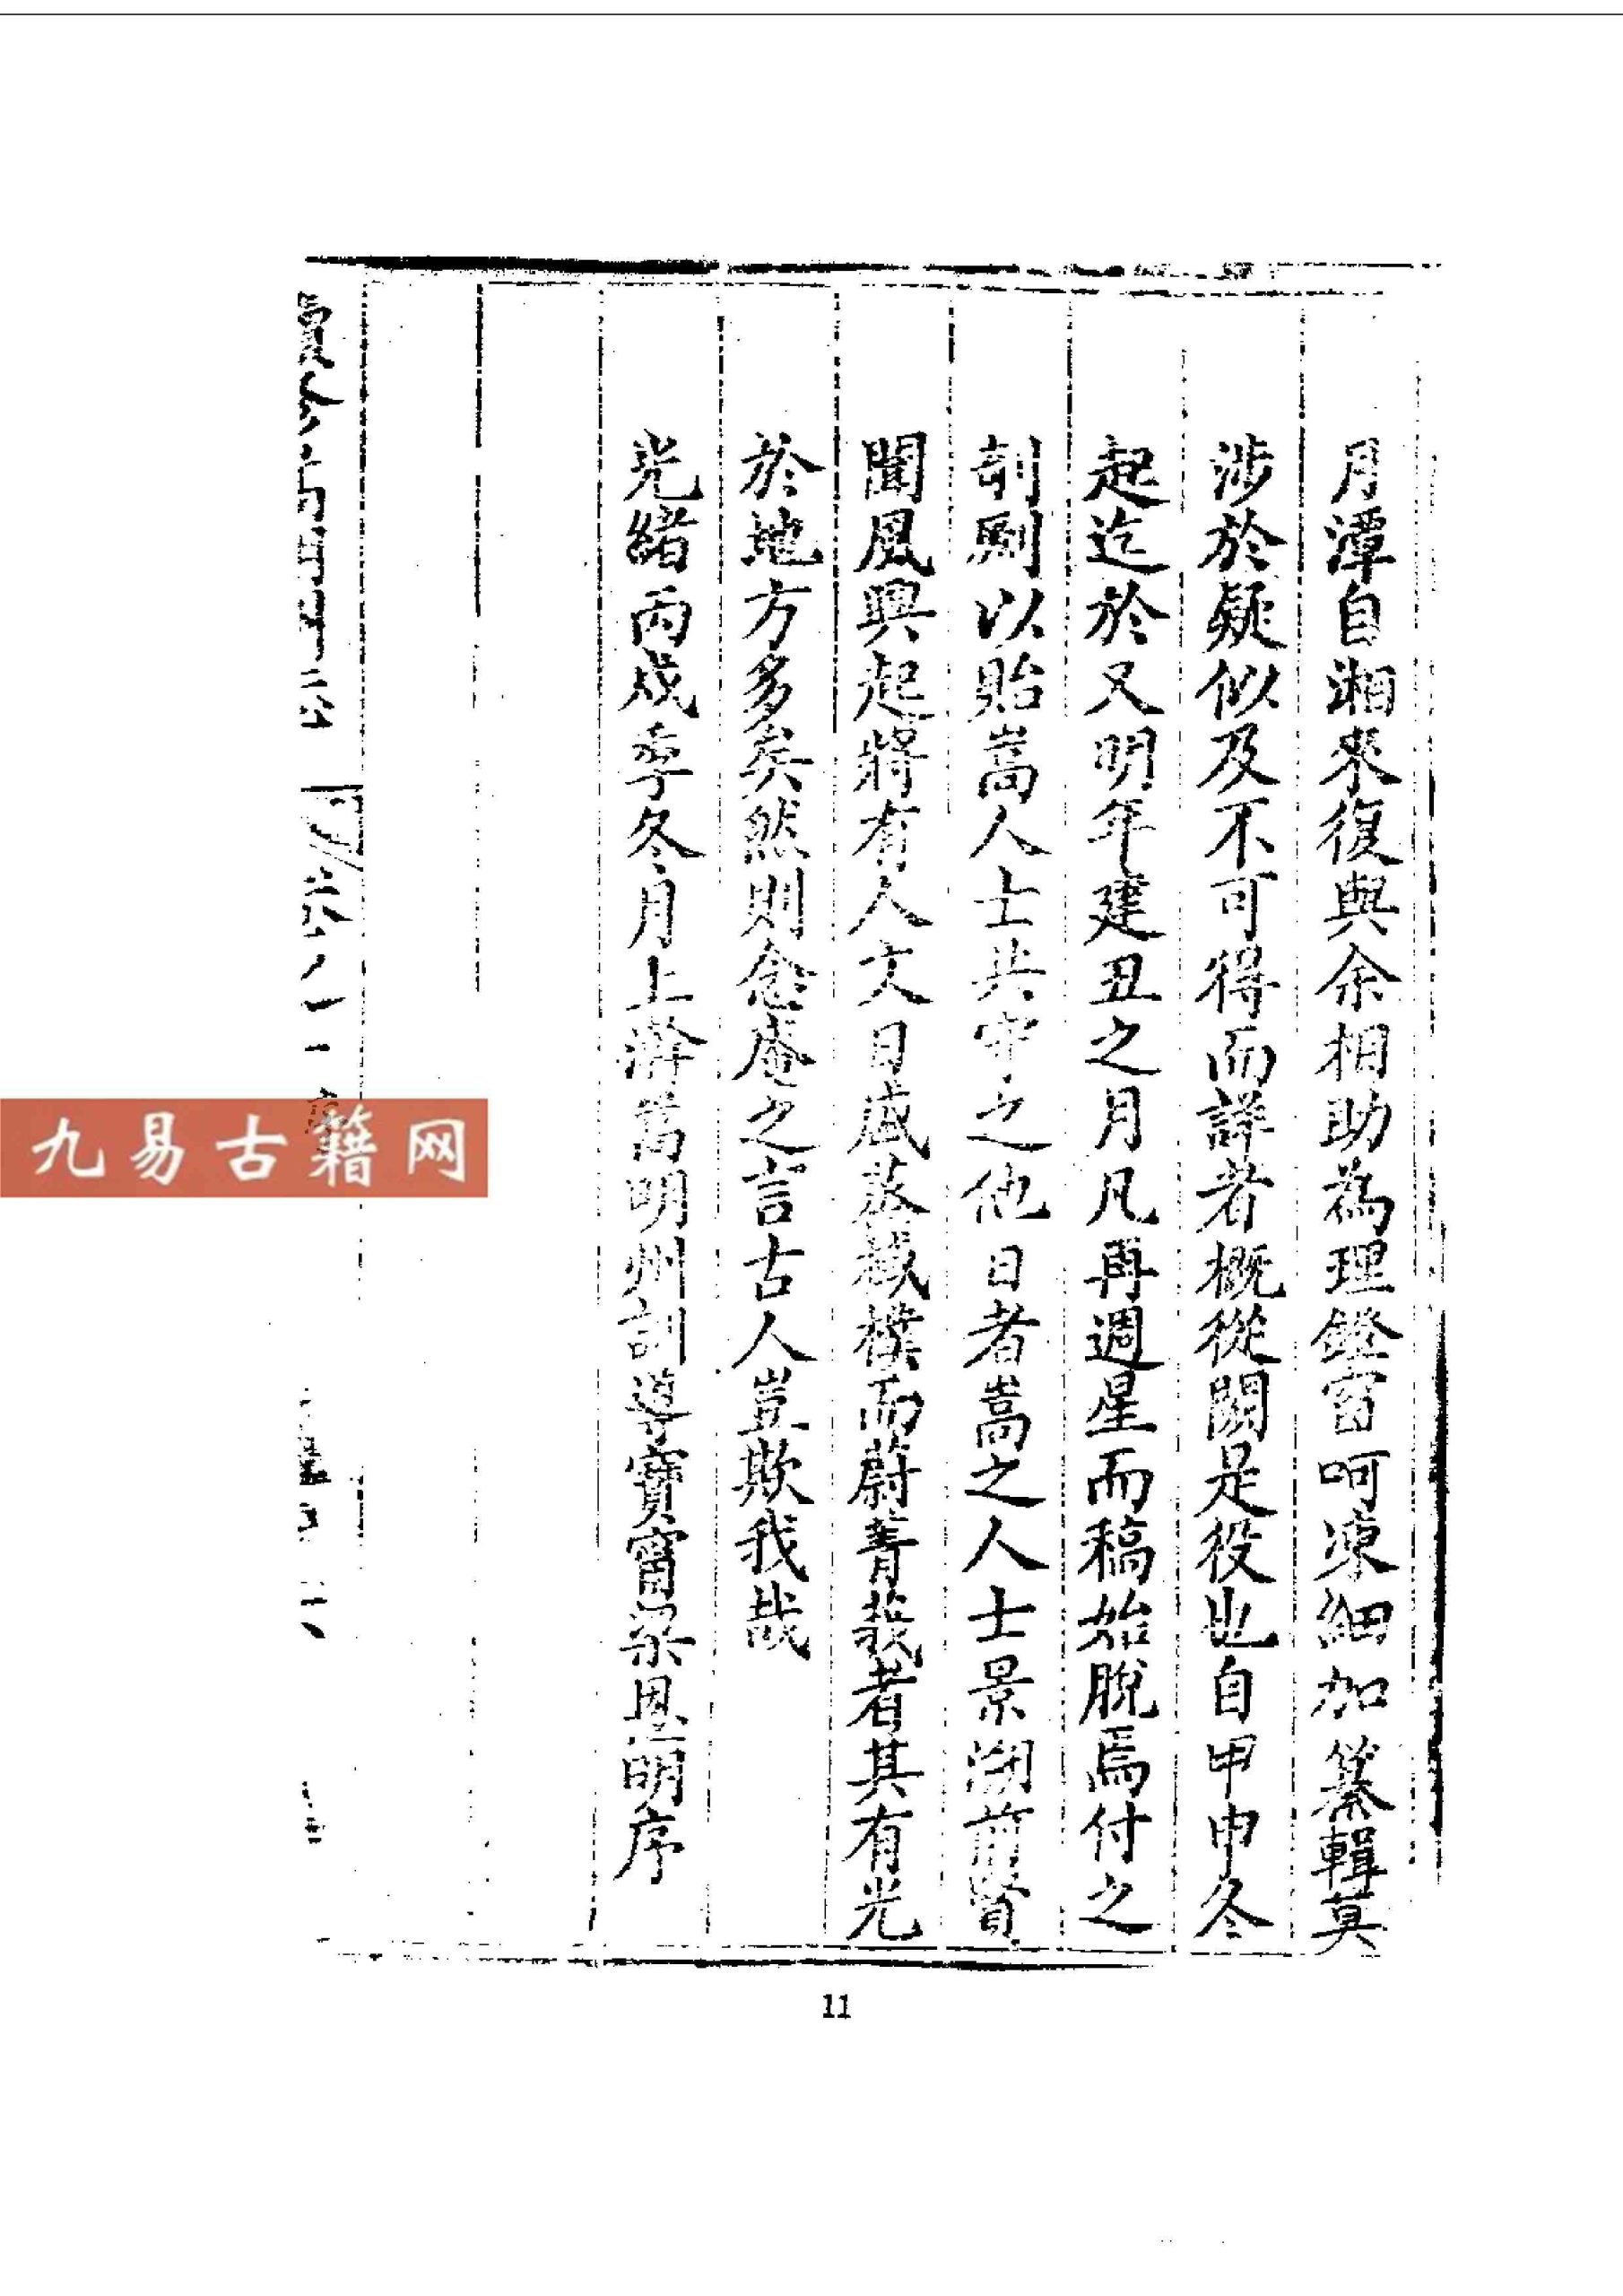 月潭自湘來復與余相助為理鐙窗呵凍細加纂輯莫
涉於疑似及不可得而詳者概從闕是役也自甲申冬
起迄於又明年建丑之月凡再週星而稿始脫焉付之
剞劂以貽嵩人士共守之他日者嵩之人士景溯前賢
聞風興起將有人文日盛蒸棫樸而蔚菁莪者其有光
於地方多矣然則念庵之言古人豈欺我哉
光緒丙戌季冬月上澣嵩明州訓導寶甯梁恩明序
九易古籍网
11